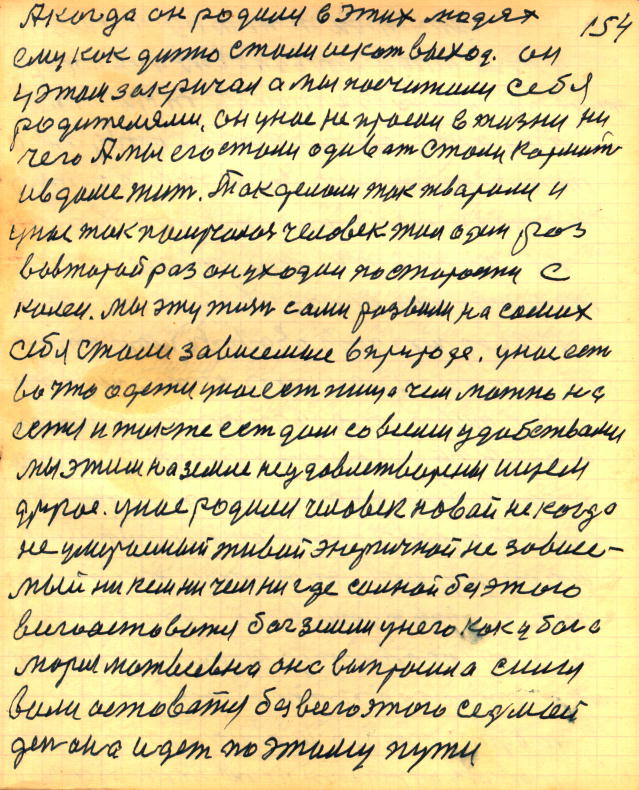 154
А когда он родили в этих людях
ему как дитю стали искат выход. он
у этом закричал а мы посчитали себя
родителями, он у нас не просил в жизни ни
чего А мы его стали одиват стали кормит
и в доме жит. Так делали так творили и
у нас так получалося человек жил один раз
во второй раз он уходил по старости с
колеи. мы эту жизн сами развели на самих
себя стали зависемые в природе. у нас ест
во что одется у нас ест пища чем можно на
естся и также ест дом со всеми удобствами
мы этим на земле неудовлетворены ищем
другое. у нас родили человек новай некогда
не умираемый живой энергичной не зависе-
мый ни кем ни чем ни где самной без этого
всего остоватся бог земли у него как у бога
мария матвеевна она выпросила силу
воли остоватся без всего этого седмой
ден она идет по этому пути